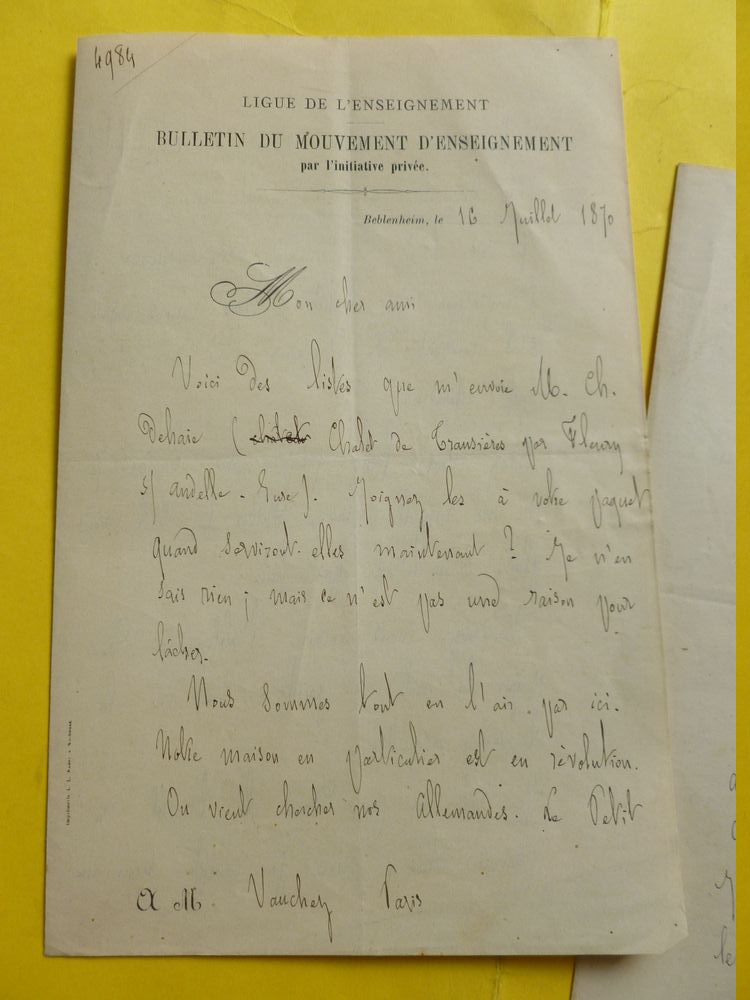 4984
LIGUE DE L'ENSEIGNEMENT
BULLETIN DU MOUVEMENT D'ENSEIGNEMENT
par l'initiative privée.
Beblenheim, le 16 Juillet 1870
Mon cher ami
Voici des listes que m'envoie M. Ch.
Dehaie ( Chalet de Transières par Fleury
s/ andelle - Eure). Joignez les à votre paquet
quand serviront-elles maintenant ? Je n'en
sais rien ; mais ce n'est pas une raison pour
lâcher.
Nous sommes tout en l'air par ici.
Notre maison en particulier est en révolution.
On vient chercher nos Allemandes. Le Petit
A M. Vauchez Paris